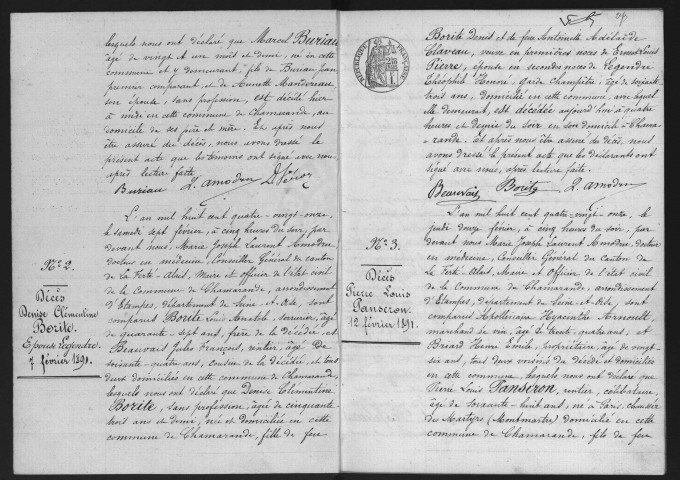 lesquels nous ont déclaré que Marcel Buriau
âgé de vingt et un mois et demi, né en cette
commune et y demeurant, fils de Buriau Jean
premier comparant et de Annette Mandereau
son épouse, sans profession, est décédé hier
à midi en cette commune de Chamarande, au
domicile de ses père et mère. Et après nous
être assuré du décès, nous avons dressé le
présent acte que les témoins ont signé avec nous
après lecture faite
Buriau L. Amodru
N° 2.
Décès
Denise Clémentine
Borite
Epouse Legendre.
7 février 1891.
L'an mil huit cent quatre-vingt-onze,
le samedi sept février, à cinq heures du soir, par
devant nous, Marie Joseph Laurent Amodru,
docteur en médecine, Conseiller Général du canton
de La Ferté-Alais, Maire et officier de l'état civil
de la Commune de Chamarande, arrondissement
d'Etampes, département de Seine-et-Oise, sont
comparus Borite Louis Anatole, serrurier, âgé
de quarante sept ans, frère de la décédée, et
Beauvais Jules François, rentier, âgé de
soixante-quatre ans, cousin de la décédée, et tous
deux domiciliés en cette commune de Chamarande,
lesquels nous ont déclaré que Denise Clémentine
Borite, sans profession, âgée de cinquante
trois ans et demi, née et domiciliée en cette
commune de Chamarande, fille de feu
Borite Denis et de feue Antoinette Adélaïde
Claveau, veuve en premières noces de Ernest Louis
Pierre, épouse en secondes noces de Legendre
Théophile Honoré, garde Champêtre, âgé de soixante
trois ans, domicilié en cette commune, avec lequel
elle demeurait, est décédée aujourd'hui à quatre
heures et demie du soir en son domicile à Chama-
rande. Et après nous être assuré du décès, nous
avons dressé le présent acte que les déclarants ont
signé avec nous, après lecture faite.
Beauvais Borite L. Amodru
N° 3.
Décès
Pierre Louis
Panseron.
12 février 1891.
L'an mil huit cent quatre-vingt-onze, le
jeudi douze février, à cinq heures du soir, par
devant nous Marie Joseph Laurent Amodru, docteur
en médecine, Conseiller Général du Canton de
La Ferté-Alais, Maire et Officier de l'état civil
de la Commune de Chamarande, arrondissement
d'Etampes, département de Seine-et-Oise, sont
comparus Apollinaire Hyacinthe Arnoult
marchand de vin, âgé de trente quatre ans, et
Briard Henri Emile, propriétaire, âgé de vingt-
six ans, tous deux voisins du décédé et domiciliés
en cette commune, lesquels nous ont déclaré que
Pierre Louis Panseron, rentier, célibataire,
âgé de soixante-huit ans, né à Paris, chaussée
du Martyre (Montmartre) domicilié en cette
commune de Chamarande, fils de feu